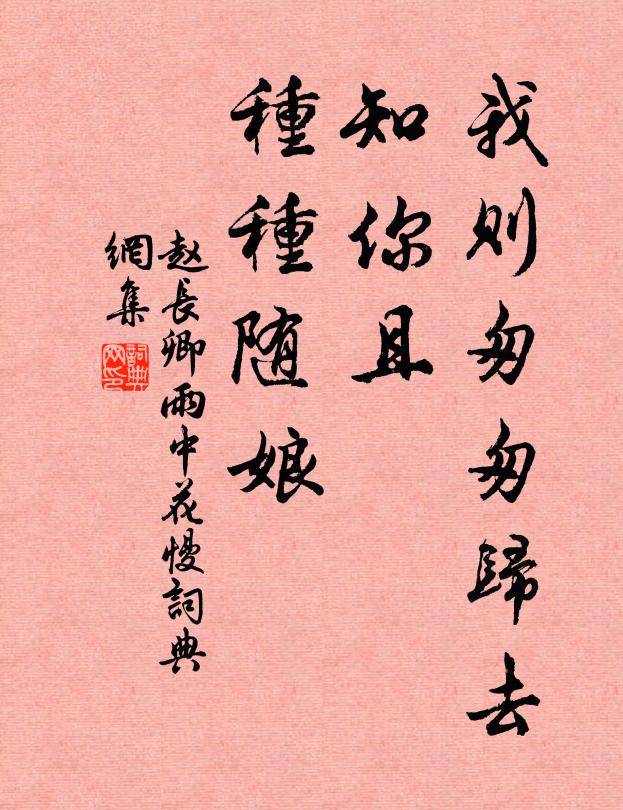 我则匆匆歸去
知你且
種種随娘
赵長卿雨中花慢詞典
網集
詞典
网印